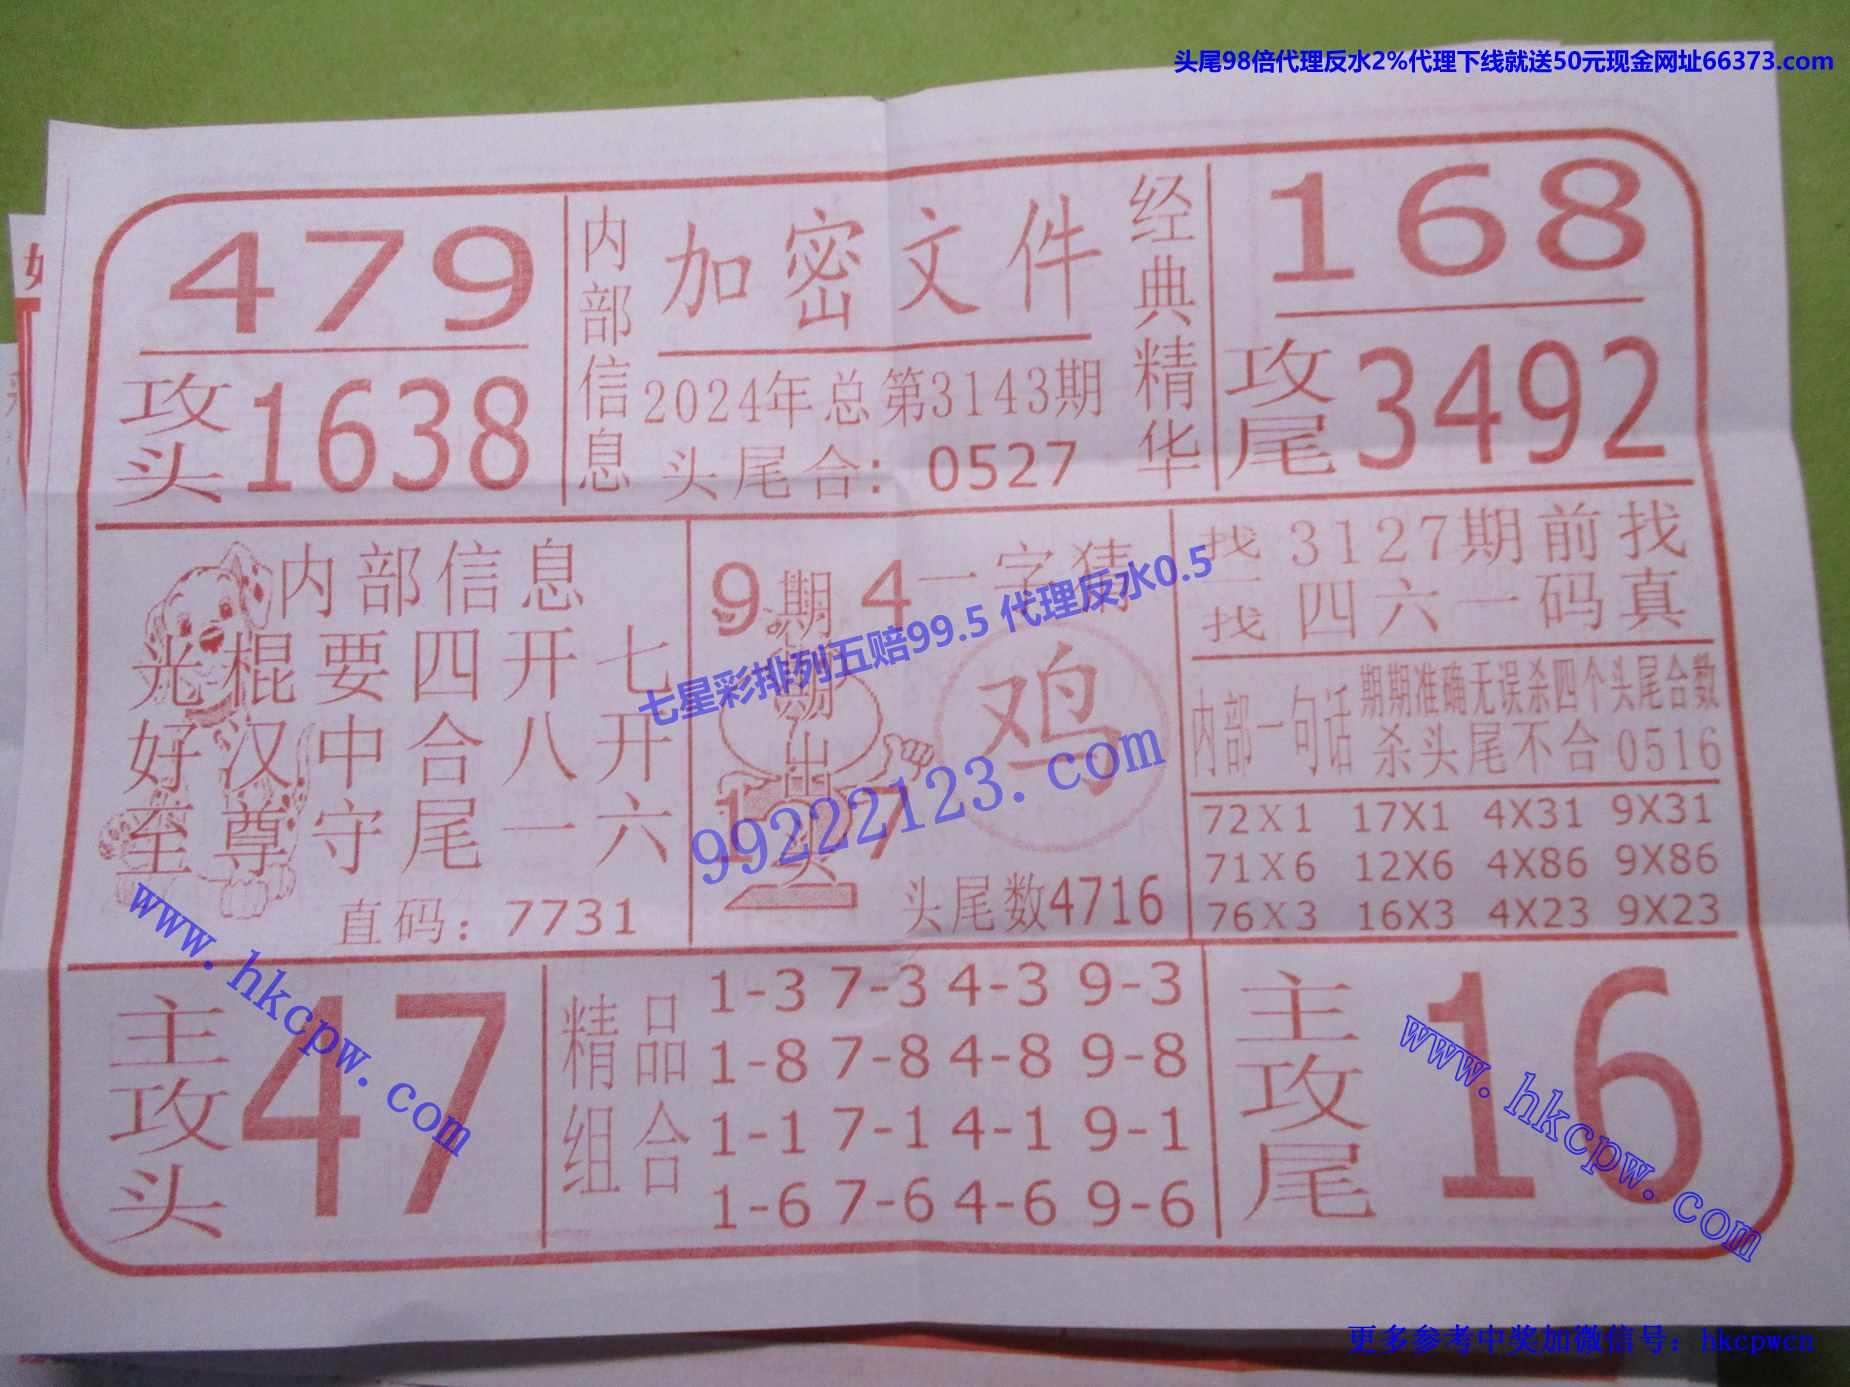 头尾98倍代理反水2%代理下线就送50元现金网址66373.com
479
攻头1638
内部信息
加密文件
2024年总第3143期
头尾合：0527
经典精华
168
攻尾3492
内部信息
光棍要四开七
好汉中合八开
至尊守尾一六
直码：7731
9 4
1 7
期期出头
一字猜
鸡
头尾数4716
找一找
3127期前找
四六一码真
内部一句话
期期准确无误杀四个头尾合数
杀头尾不合0516
72X1 17X1 4X31 9X31
71X6 12X6 4X86 9X86
76X3 16X3 4X23 9X23
主攻头
47
精品组合
1-3 7-3 4-3 9-3
1-8 7-8 4-8 9-8
1-1 7-1 4-1 9-1
1-6 7-6 4-6 9-6
主攻尾
16
七星彩排列五赔99.5 代理反水0.5
99222123.com
www.hkcpw.com
www.hkcpw.com
更多参考中奖加微信号：hkcpwcn